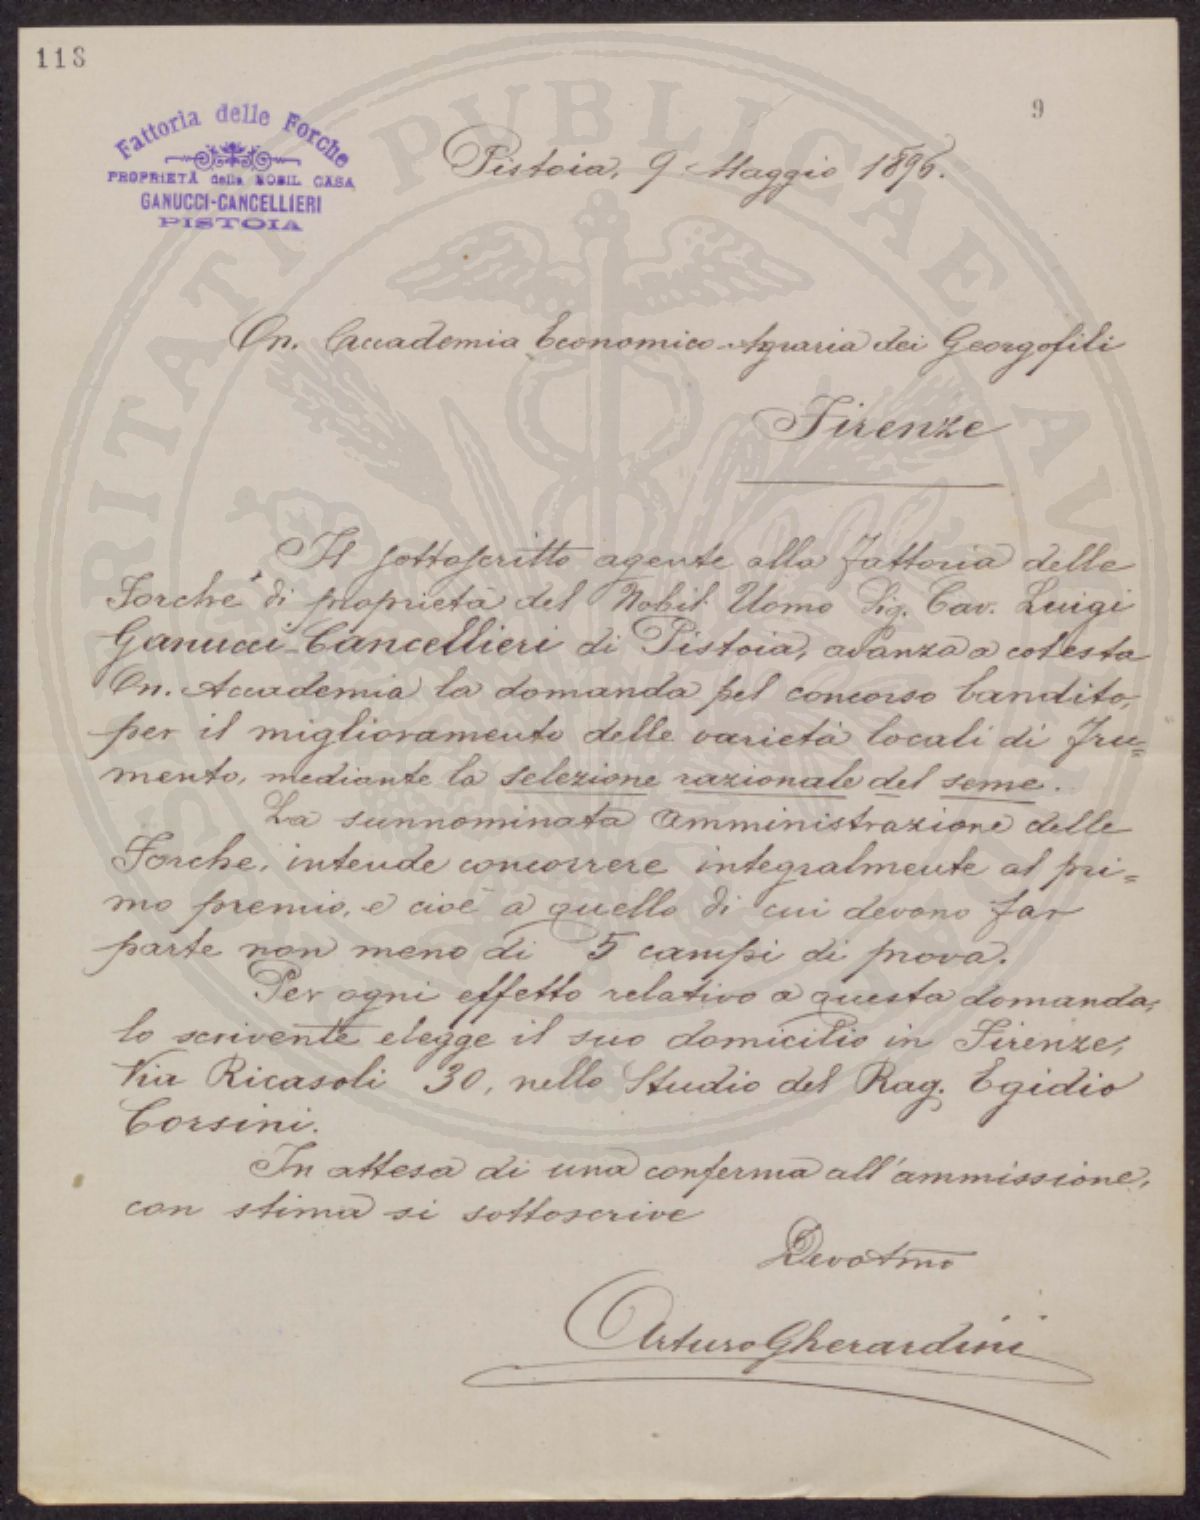 118
9
Fattoria delle Forche
PROPRIETÀ della NOBIL CASA
GANUCCI-CANCELLIERI
PISTOIA
Pistoia, 9 Maggio 1896.
On. Accademia Economico-Agraria dei Georgofili
Firenze
Il sottoscritto agente alla Fattoria delle
Forche di proprietà del Nobil Uomo Sig. Cav. Luigi
Ganucci-Cancellieri di Pistoia, avanza a cotesta
On. Accademia la domanda pel concorso bandito,
per il miglioramento delle varietà locali di Fru=
mento, mediante la selezione razionale del seme.
La sunnominata Amministrazione delle
Forche, intende concorrere integralmente al pri=
mo premio, e cioè a quello di cui devono far
parte non meno di 5 campi di prova.
Per ogni effetto relativo a questa domanda,
lo scrivente elegge il suo domicilio in Firenze,
Via Ricasoli 30, nello Studio del Rag. Egidio
Corsini.
In attesa di una conferma all'ammissione,
con stima si sottoscrive
Devotmo
Arturo Gherardini